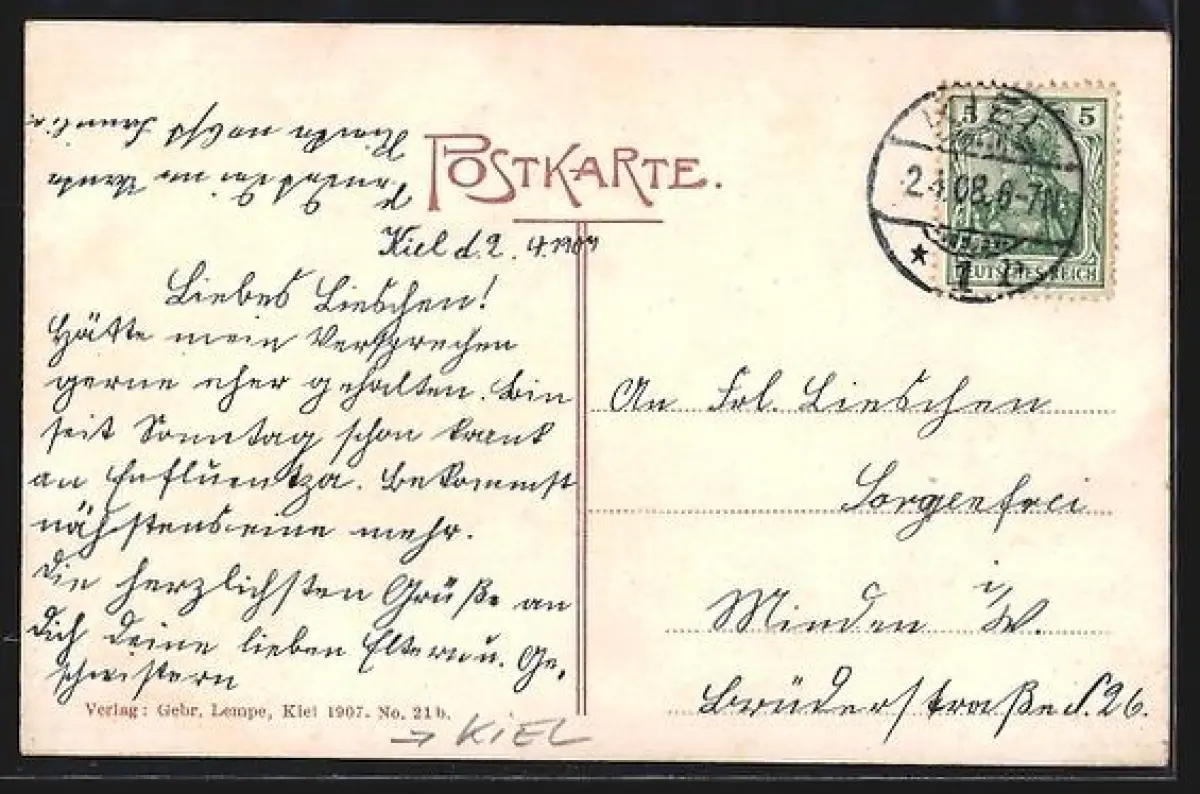 POSTKARTE.
Kiel d. 2. 4. 1907
Liebes Lieschen!
Hätte mein Versprechen
gerne eher gehalten. Bin
seit Sonntag schon krank
an Enfluentza. Bekommst
nähstens eine mehr.
Die herzlichsten Grüße an
dich deine lieben Eltern u. Ge-
schwistern
Verlag: Gebr. Lempe, Kiel 1907. No. 21 b.
→ KIEL
5 5
DEUTSCHES REICH
KIEL
2.4.08. 6-7N.
* 1 n
An Frl. Lieschen
Sorgenfrei
Minden i/W.
Brüderstraße 26.